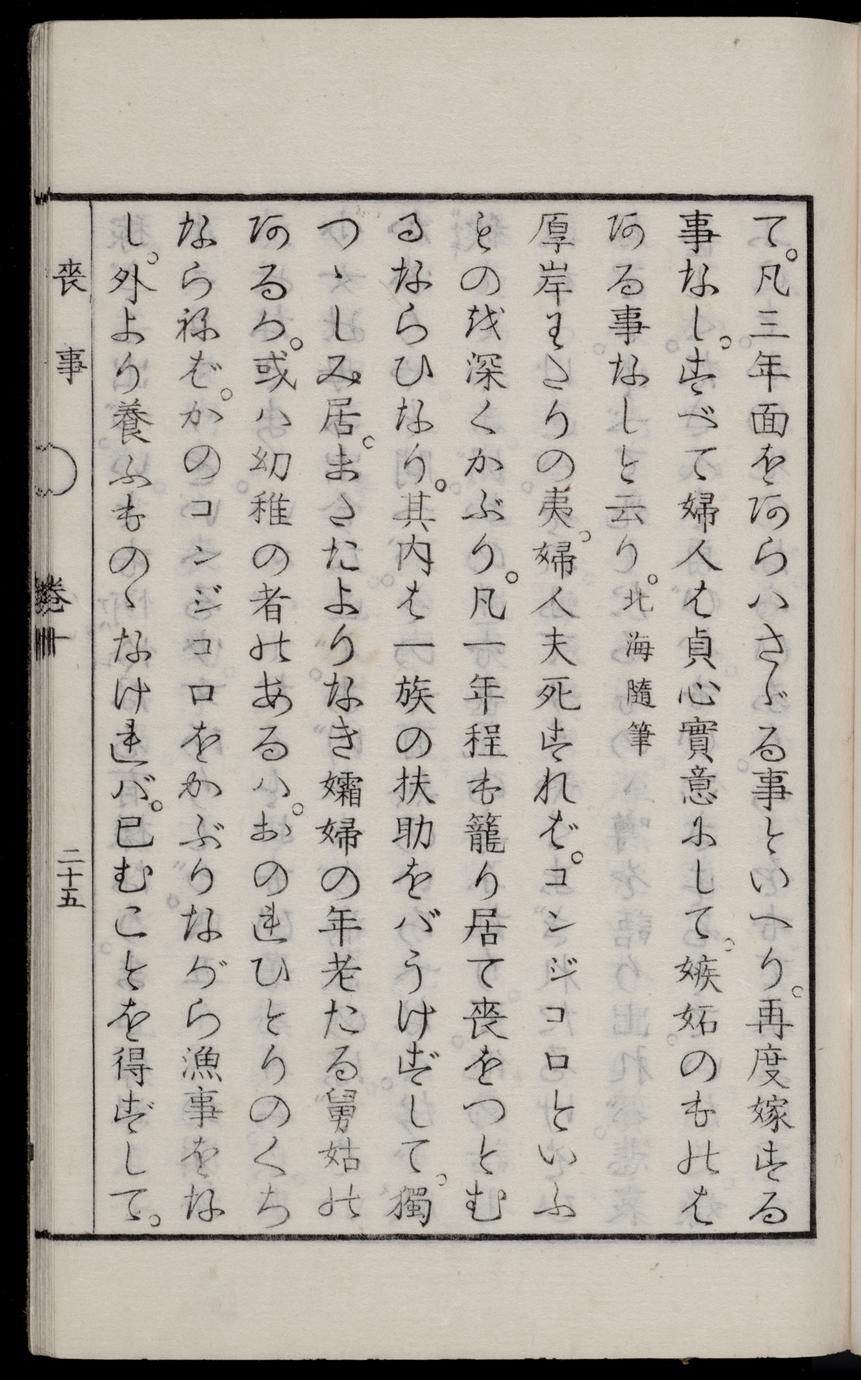 て。凡三年面をあらハさゞる事といへり。再度嫁する
事なし。すべて婦人は貞心實意にして。嫉妬のものは
ある事なしと云り。北海隨筆
厚岸わたりの夷。婦人夫死すれば。コンジコロといふ
ものを深くかぶり。凡一年程も籠り居て喪をつとむ
るならひなり。其内は一族の扶助をバうけずして。獨
つゝしみ居。またたよりなき孀婦の年老たる舅姑の
あるか。或ハ幼稚の者のあるハ。おのれひとりのくち
ならねば。かのコンジコロをかぶりながら漁事をな
し。外より養ふものゝなけれバ。已むことを得ずして。
喪事
卷
二十五